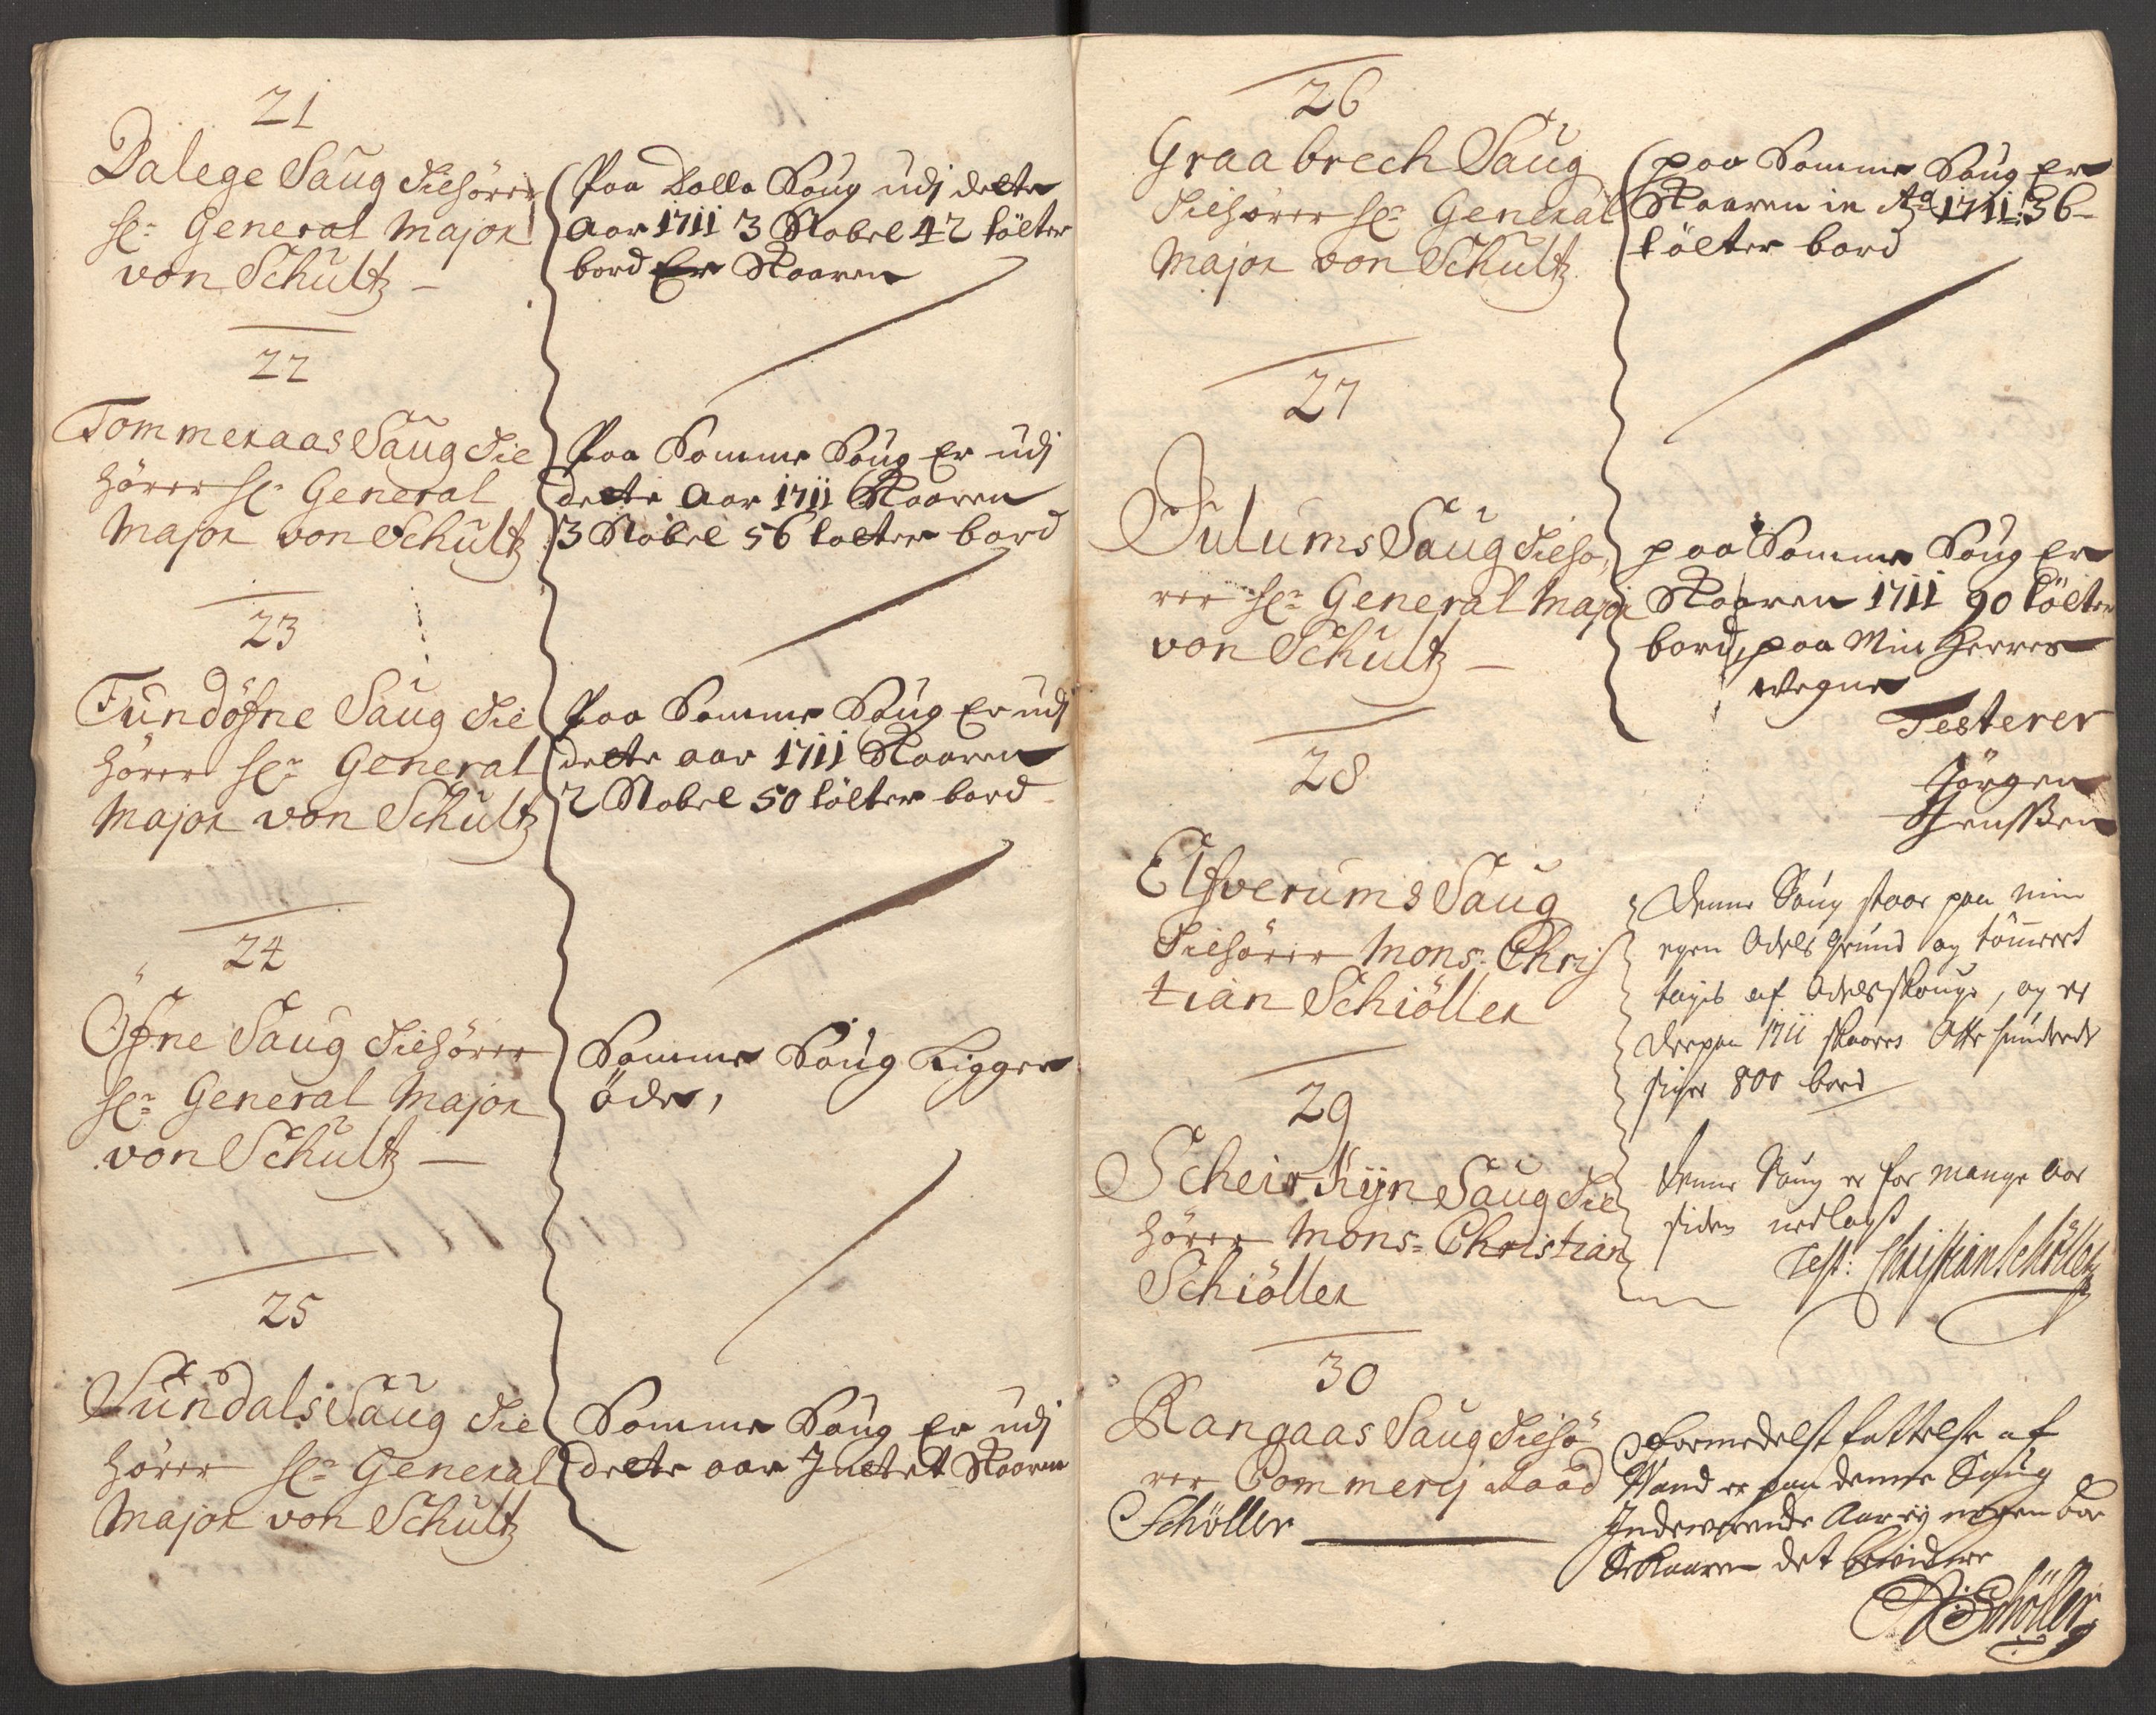 21
Dalege Saug Tilhörer
Sl: General Major
von Schultz –
Paa Dalle Saug udj dette
Aar 1711 3 Stabel 42 tölter
bord Er Skaaren
22
Tommeraas Saug Til
hörer Sl: General
Major von Schultz
Paa Samme Saug Er udj
dette Aar 1711 Skaaren
3 Stabel 56 tolter bord
23
Tundöfne Saug Til
hörer Sl: General
Major von Schultz
Paa Samme Saug Er udj
dette aar 1711 Skaaren
2 Stabel 50 tölter bord
24
Öfne Saug Tilhörer
Sl: General Major
von Schultz –
Samme Saug Ligger
öde,
25
Sundals Saug Til
hörer Sl: General
Major von Schultz
Samme Saug Er udj
dette aar Intet Skaaren
26
Graabrech Saug
Tilhörer Sl: General
Major von Schultz
paa Samme Saug Er
Skaaren in Ao 1711: 36–
tölter bord
27
Julums Saug Tilhö,
rer Sl: General Major
von Schultz –
paa Samme Saug Er
Skaaren 1711 90 tölter
bord, paa Min Herres
Wegne
Testerer
Jörgen
Jenssen
28
Elfverums Saug
Tilhörer Mons: Chris
tian Schiöller
Denne Saug staar paa min
egen Odels grund og tömret
tagis af Odels skouge, og er
derpaa 1711 skaaren Otte hundrede
siger 800 bord
29
Scheirkijn Saug Til
hörer Mons: Christian
Schiöller
denne Saug er for mange Aar
siden nedlagt
Test: Christian Schöller
30
Rangaas Saug Tilhö
rer Commerj Raad
Schöller
Formedelst fattelse af
Vand er paa denne Saug
Indeverende Aar ej nogen bor
Skaaren det bevidner
Schöller